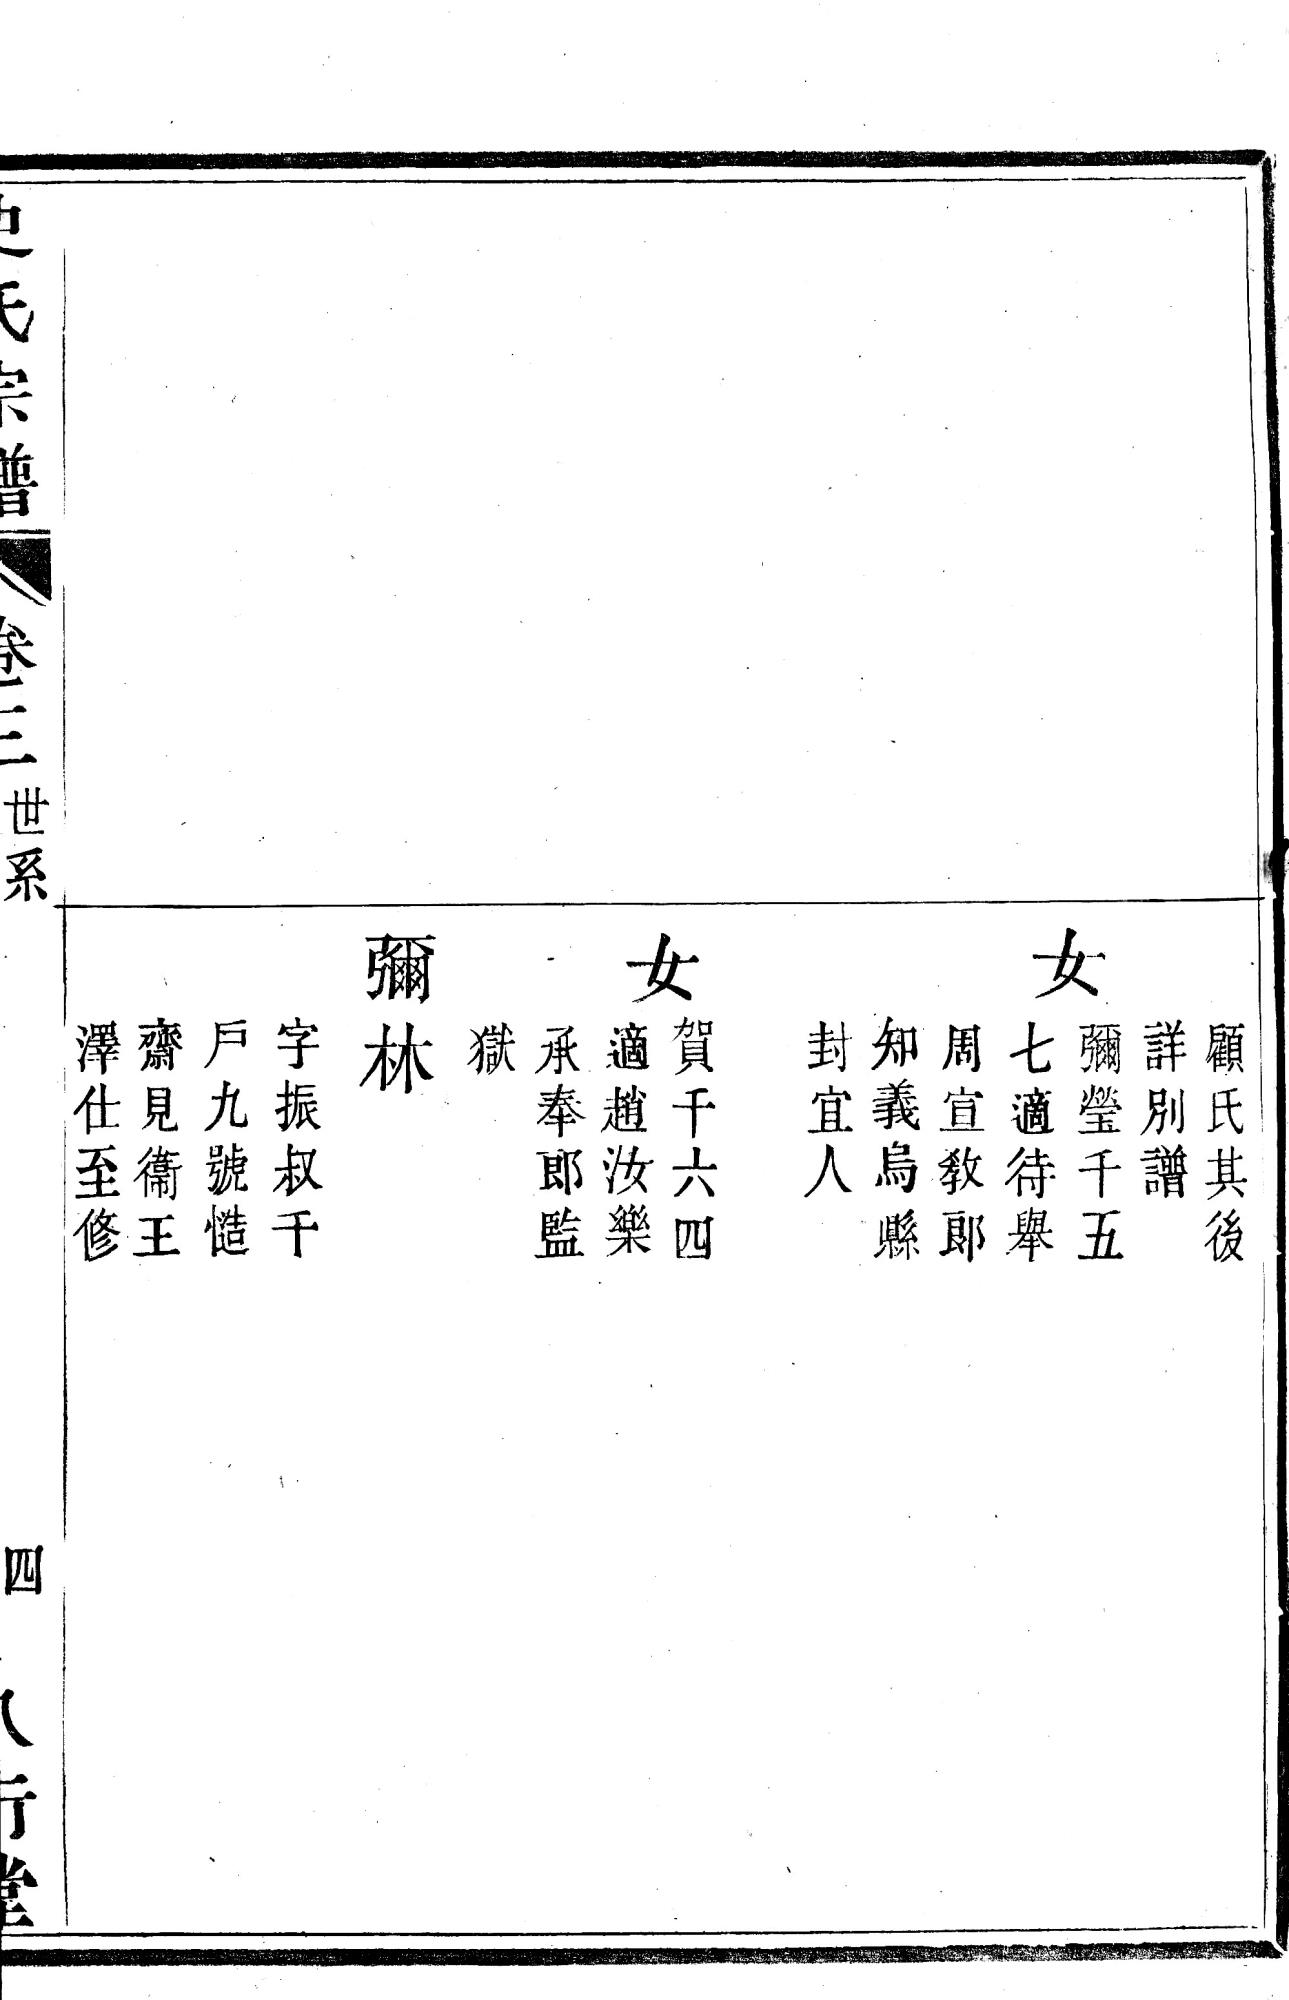 顧氏其後
詳別譜
女
彌瑩千五
七適待舉
周宣教郎
知義烏縣
封宜人
女
賀千六四
適趙汝樂
承奉郎監
獄
彌林
字振叔千
戶九號慥
齋見衞王
澤仕至修
史氏宗譜
卷三
世系
四
八行堂